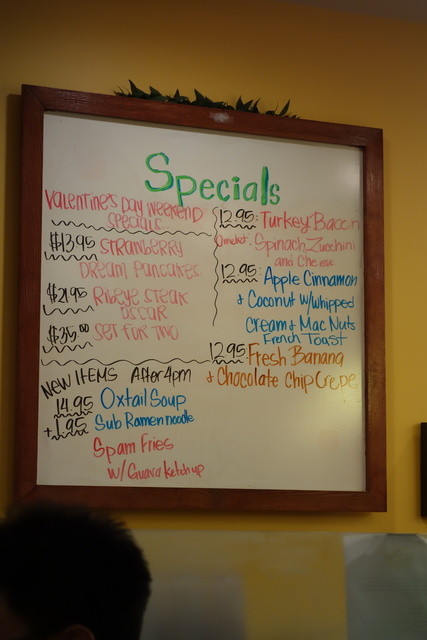 Specials
Valentine's Day Weekend
Specials
$13.95 Strawberry
Dream Pancakes
$21.95 Ribeye Steak
Oscar
$35.00 Set for Two
New Items After 4pm
14.95 Oxtail Soup
+1.95 Sub Ramen noodle
Spam Fries
w/ Guava ketchup
12.95: Turkey Bacon
Omelet. Spinach, Zucchini
and Cheese
12.95: Apple Cinnamon
& Coconut w/ whipped
Cream & Mac Nuts
French Toast
12.95: Fresh Banana
& Chocolate Chip Crepe